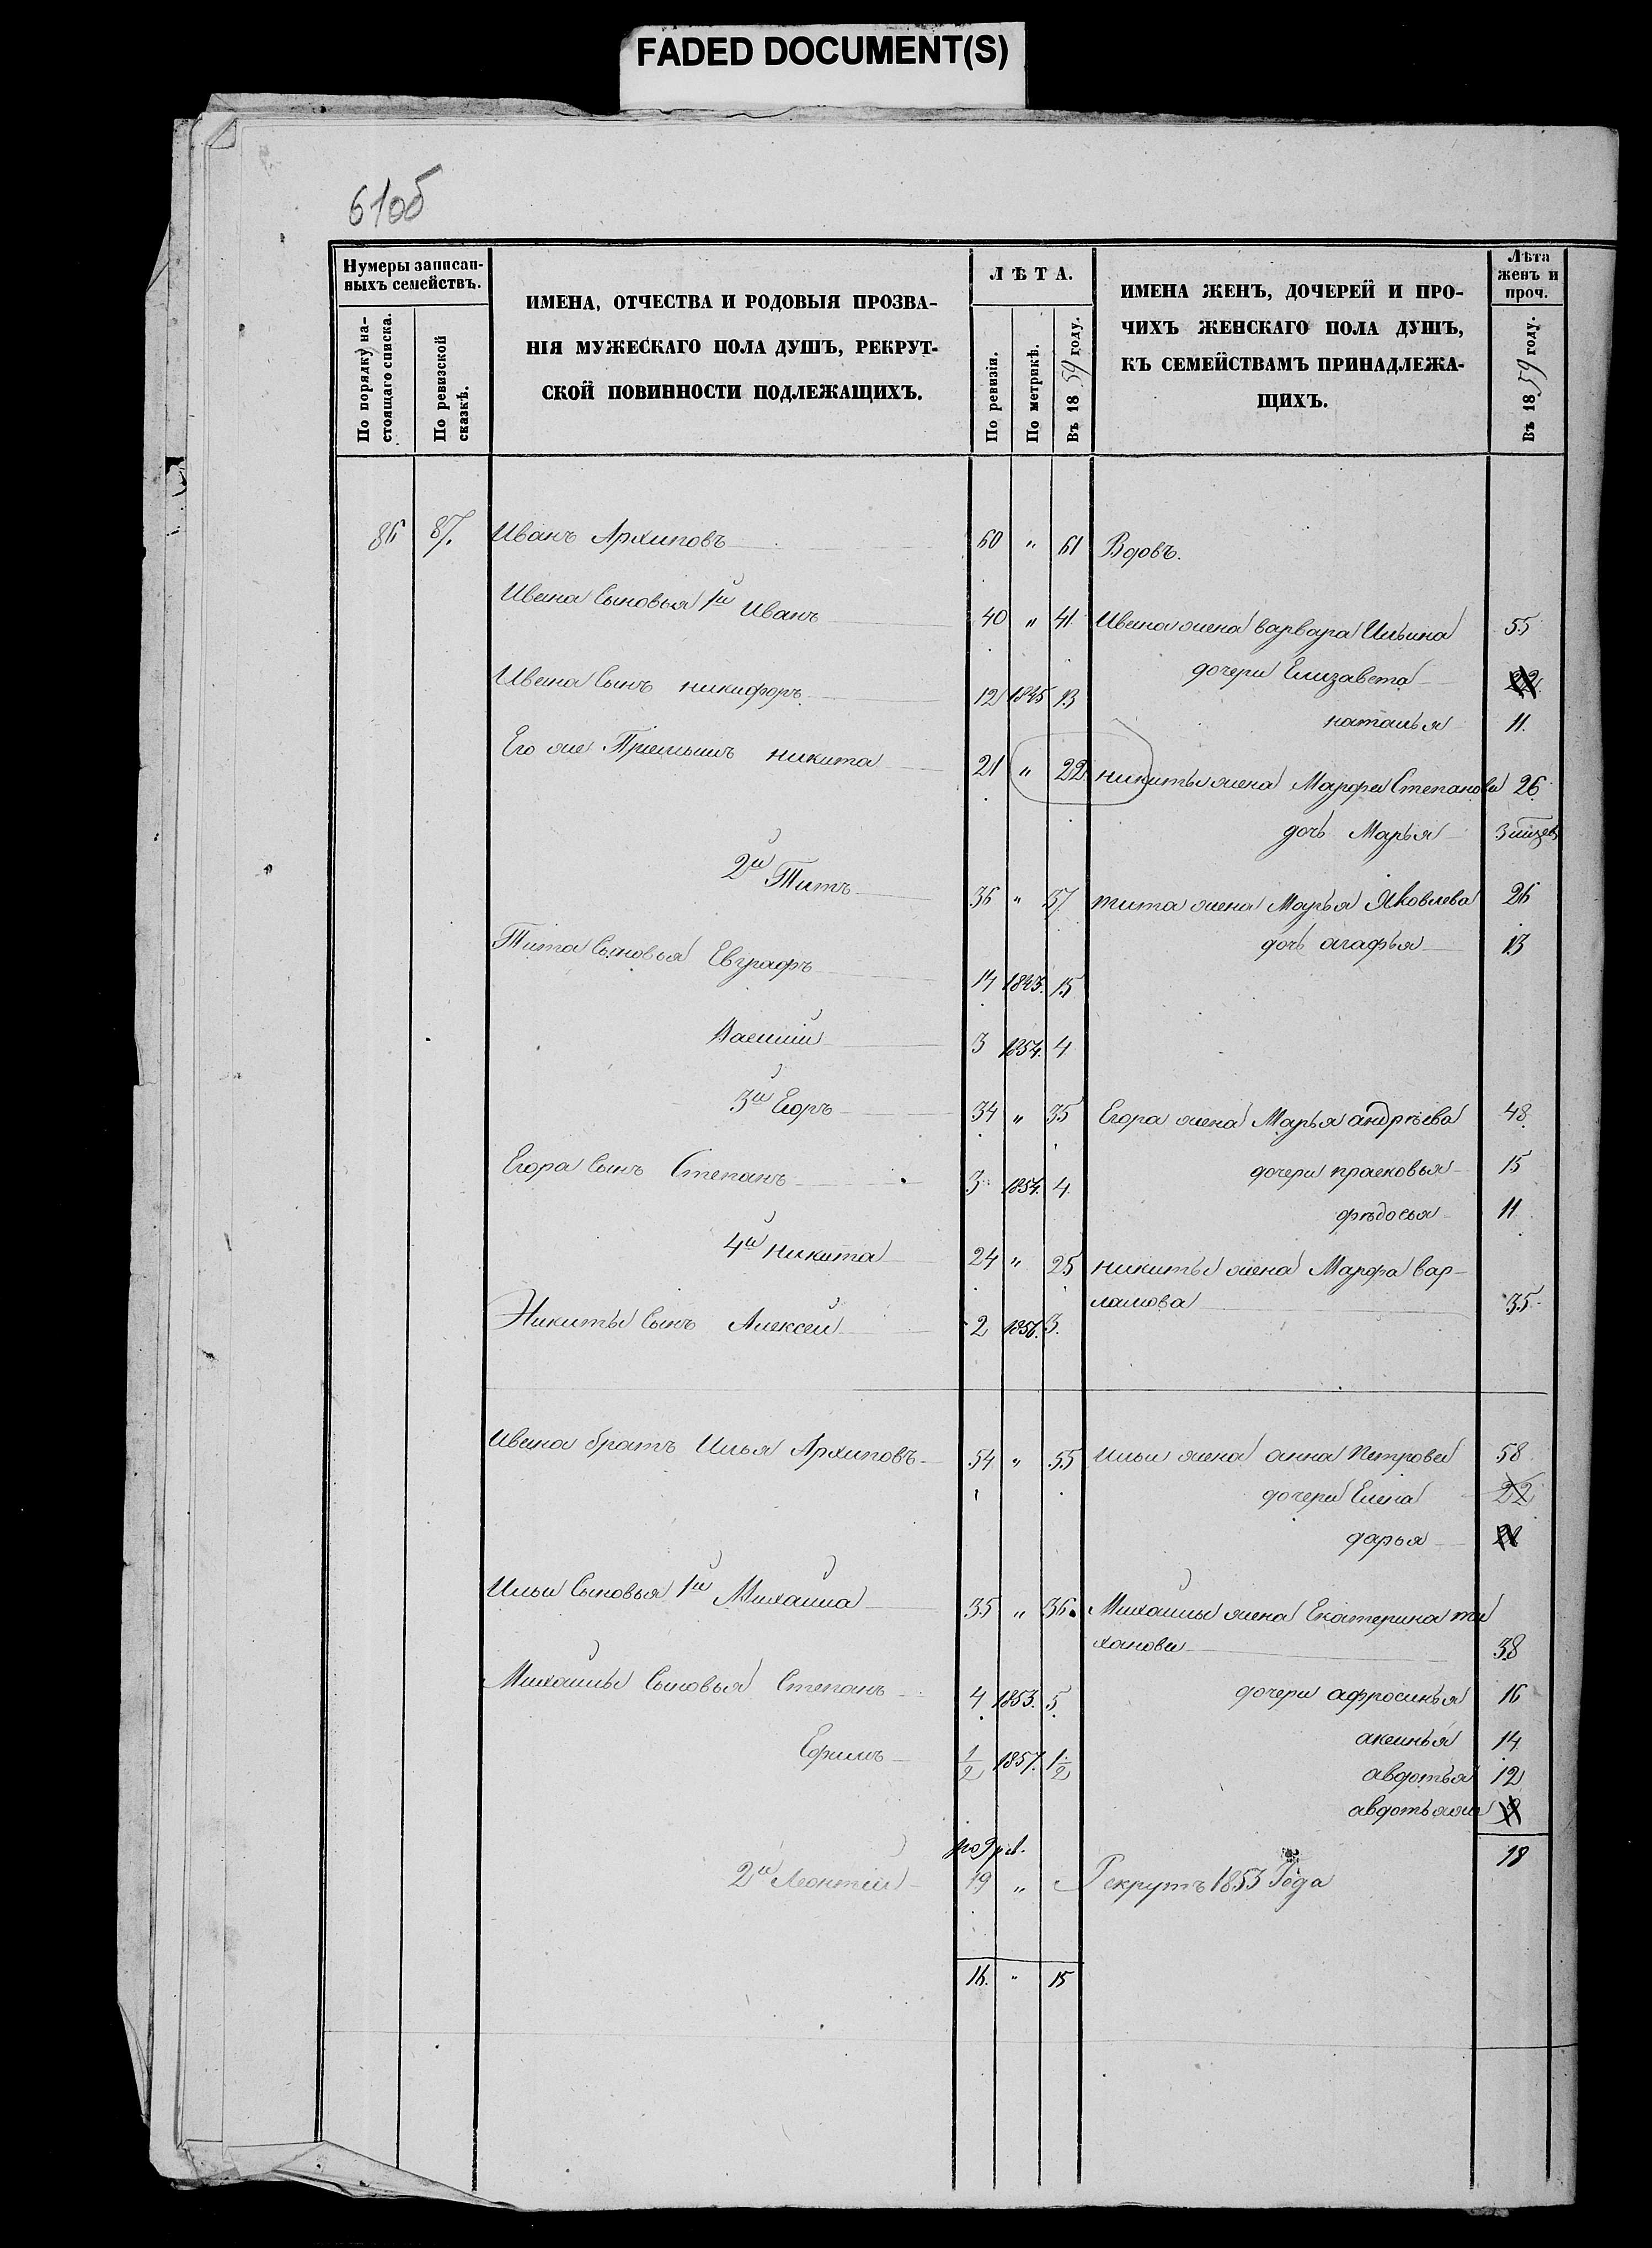 FADED DOCUMENT(S)
61об
Нумеры записан-
ныхъ семействъ.
По порядку на-
стоящаго списка.
По ревизской
сказкѣ.
ИМЕНА, ОТЧЕСТВА И РОДОВЫЯ ПРОЗВА-
НІЯ МУЖЕСКАГО ПОЛА ДУШЪ, РЕКРУТ-
СКОЙ ПОВИННОСТИ ПОДЛЕЖАЩИХЪ.
ЛѢТА.
По ревизіи.
По метрикѣ.
Въ 1859 году.
ИМЕНА ЖЕНЪ, ДОЧЕРЕЙ И ПРО-
ЧИХЪ ЖЕНСКАГО ПОЛА ДУШЪ,
КЪ СЕМЕЙСТВАМЪ ПРИНАДЛЕЖА-
ЩИХЪ.
Лѣта
женъ и
проч.
Въ 1859 году.
86 87. Иванъ Архиповъ 60 " 61 Вдовъ.
Ивана Сыновья 1й Иванъ 40 " 41 Ивана жена варвара Ильина 55
дочери Елизавета 22
Ивана Сынъ никифоръ 12 1845 13
наталья 11.
Его же Приемышъ никита 21 " 22 никиты жена Марфа Степанова 26
дочь Марья 3 мѣсяц
2й Титъ 36 " 37 тита жена Марья Яковлева 26
дочь агафья 13
Тита Сыновья Евграфъ 14 1843. 15
Василий 3 1854. 4
3й Егоръ 34 " 35 Егора жена Марья андрѣева 48
Егора Сынъ Степанъ 3 1854. 4 дочери прасковья 15
фѣдосья 11
4й никита 24 " 25 никиты жена Марфа вар-
ламова 35
Никиты Сынъ Алексей 2 1856. 3.
Ивана братъ Илья Архиповъ 54 " 55 Ильи жена анна Петрова 58
дочери Елена 22
дарья
Ильи Сыновья 1й Михаила 35 " 36. Михаилы жена Екатерина ти
ханова 38
Михаилы Сыновья Степанъ 4 1853. 5 дочери афросинья 16
аксинья 14
Ефимъ 1/2 1857. 1 1/2
авдотья 12
авдотьяжъ 8
18
по 9 рев.
2й Леонтий 19 " Рекрутъ 1853 Года
16. " 15